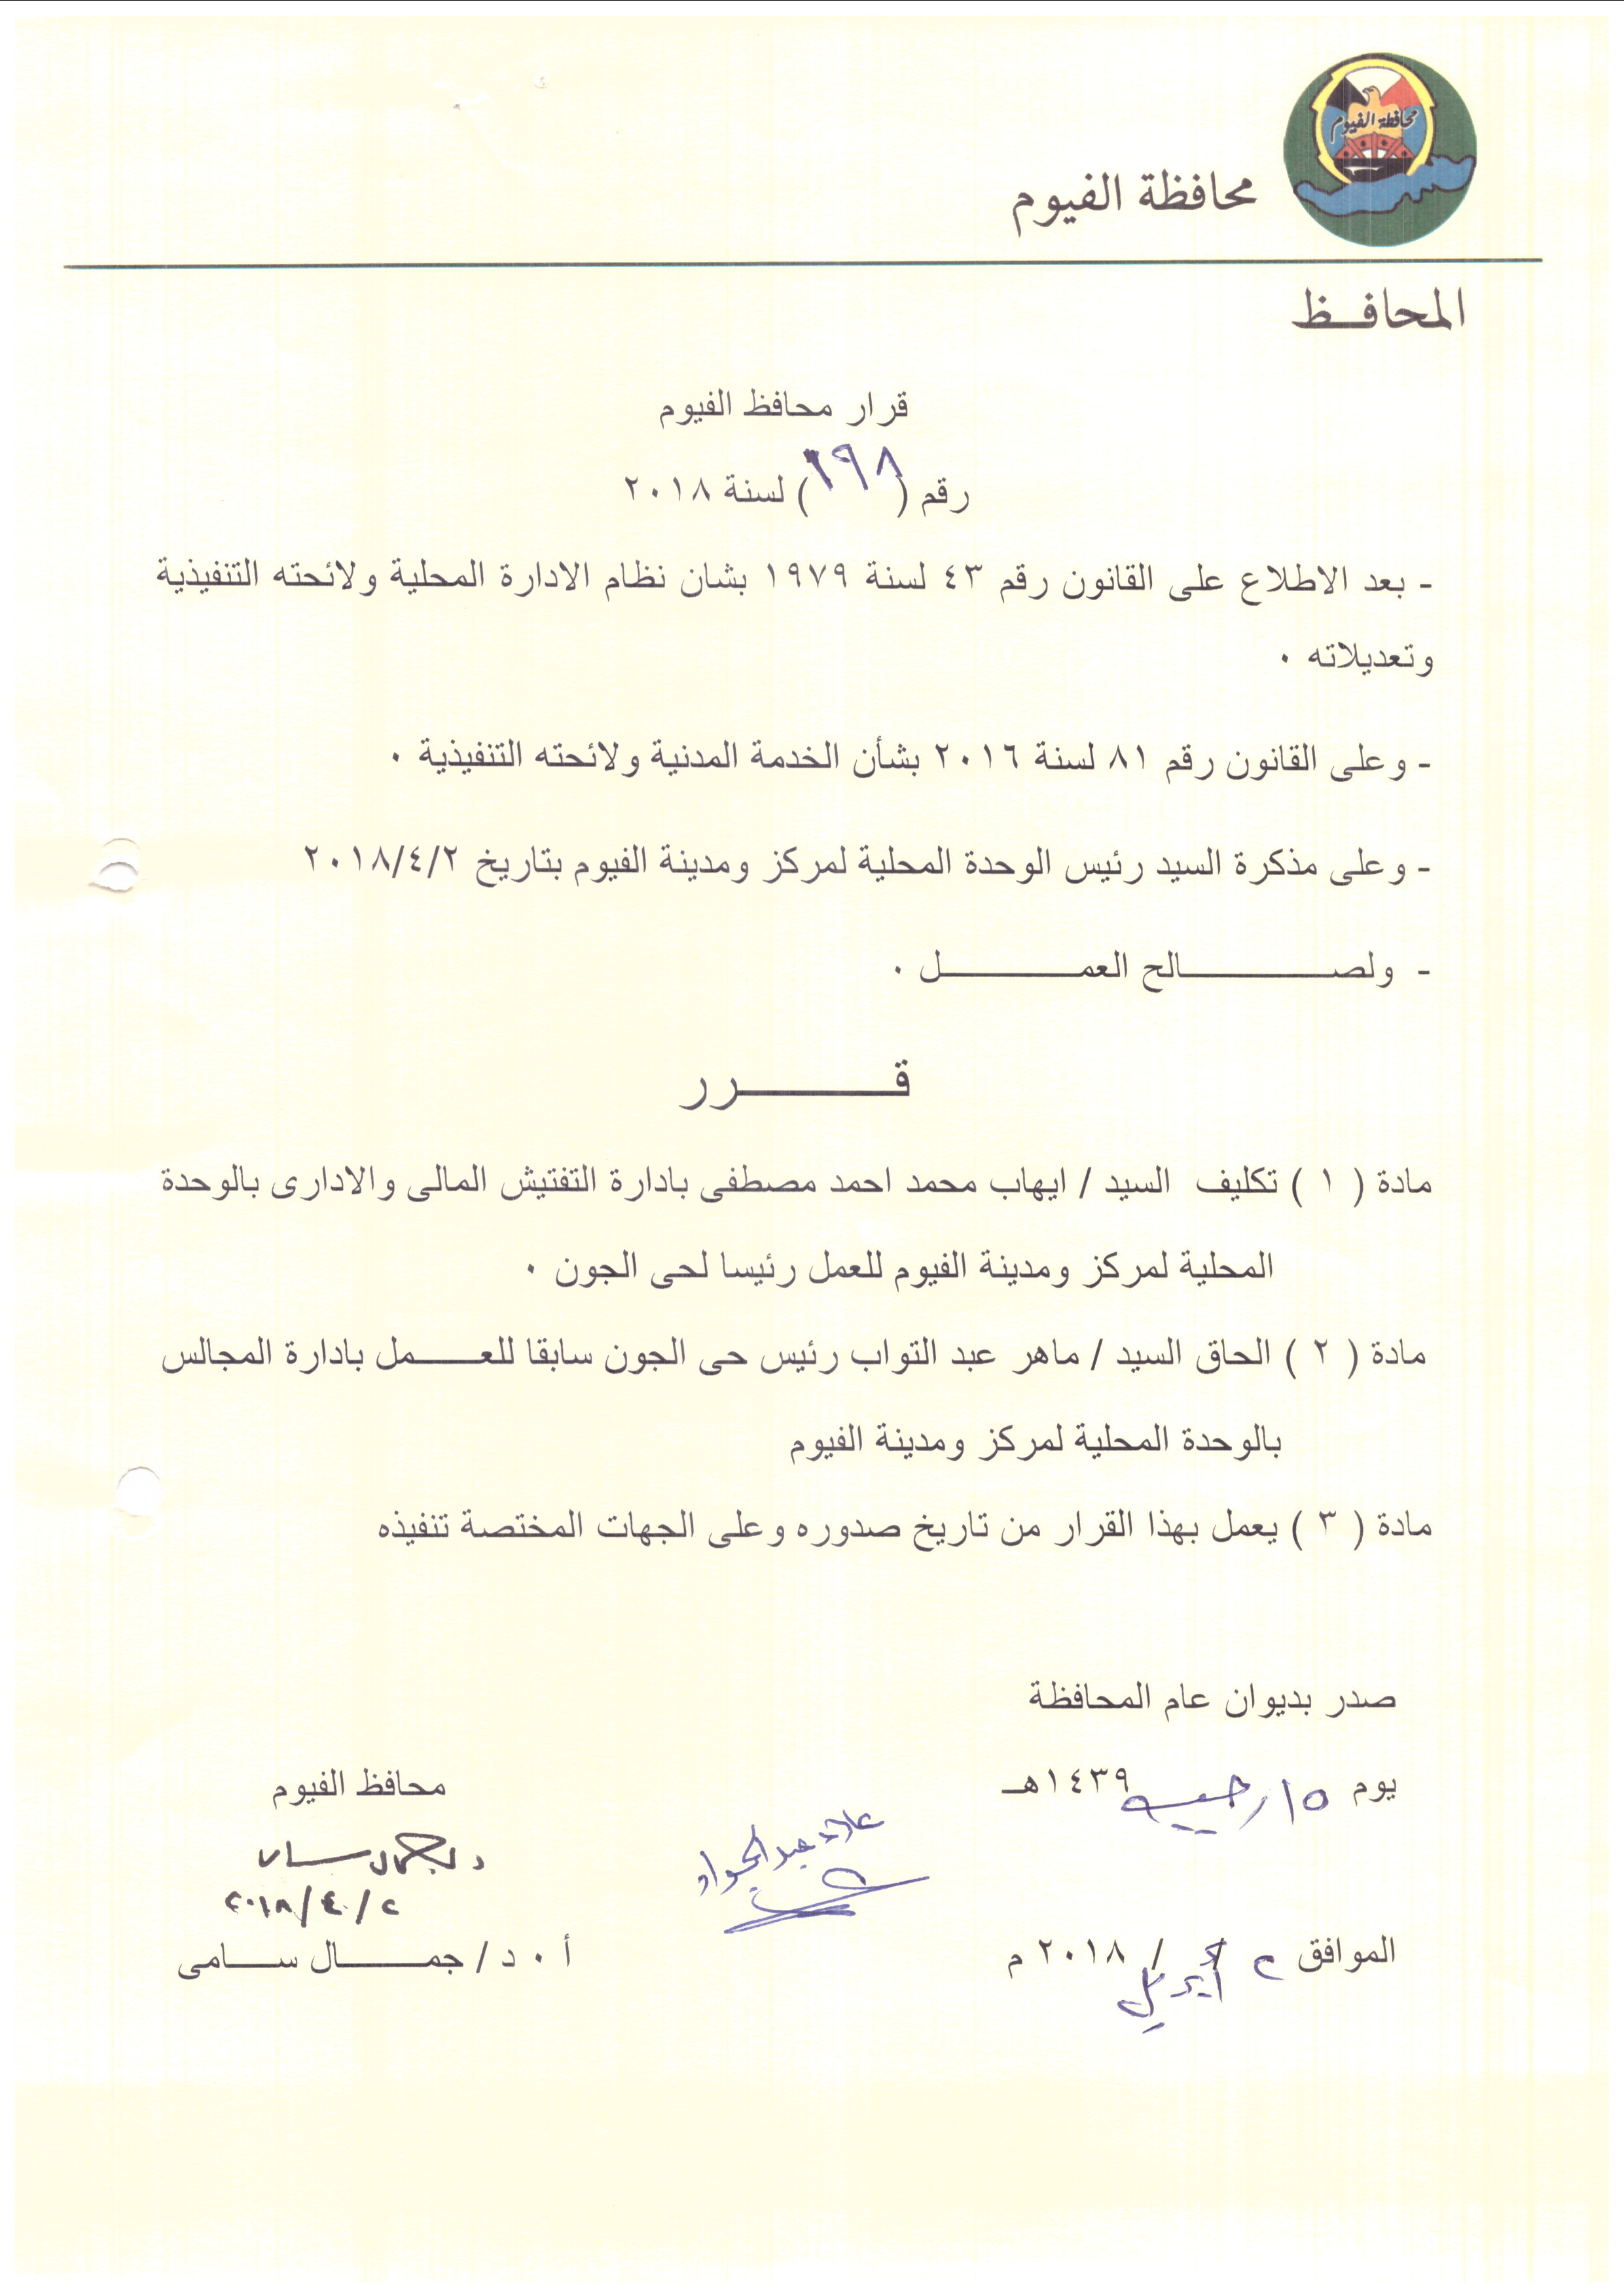 محافظة الفيوم
محافظة الفيوم
المحافـــظ
قرار محافظ الفيوم
رقم (٦٩٨) لسنة ٢٠١٨
- بعد الاطلاع على القانون رقم ٤٣ لسنة ١٩٧٩ بشان نظام الادارة المحلية ولائحته التنفيذية
وتعديلاته ٠
- وعلى القانون رقم ٨١ لسنة ٢٠١٦ بشأن الخدمة المدنية ولائحته التنفيذية ٠
- وعلى مذكرة السيد رئيس الوحدة المحلية لمركز ومدينة الفيوم بتاريخ ٢٠١٨/٤/٢
- ولصـــــــــالح العمـــــــــل ٠
قـــــــــرر
مادة ( ١ ) تكليف السيد / ايهاب محمد احمد مصطفى بادارة التفتيش المالى والادارى بالوحدة
المحلية لمركز ومدينة الفيوم للعمل رئيسا لحى الجون ٠
مادة ( ٢ ) الحاق السيد / ماهر عبد التواب رئيس حى الجون سابقا للعـــــمل بادارة المجالس
بالوحدة المحلية لمركز ومدينة الفيوم
مادة ( ٣ ) يعمل بهذا القرار من تاريخ صدوره وعلى الجهات المختصة تنفيذه
صدر بديوان عام المحافظة
يوم ١٥ رجب ١٤٣٩هـ
الموافق ٢ / أبريل / ٢٠١٨ م
علاء عبد الجواد
محافظ الفيوم
د. جمال سامى
٢٠١٨/٤/٢
أ ٠ د / جمـــــــال ســـــامى